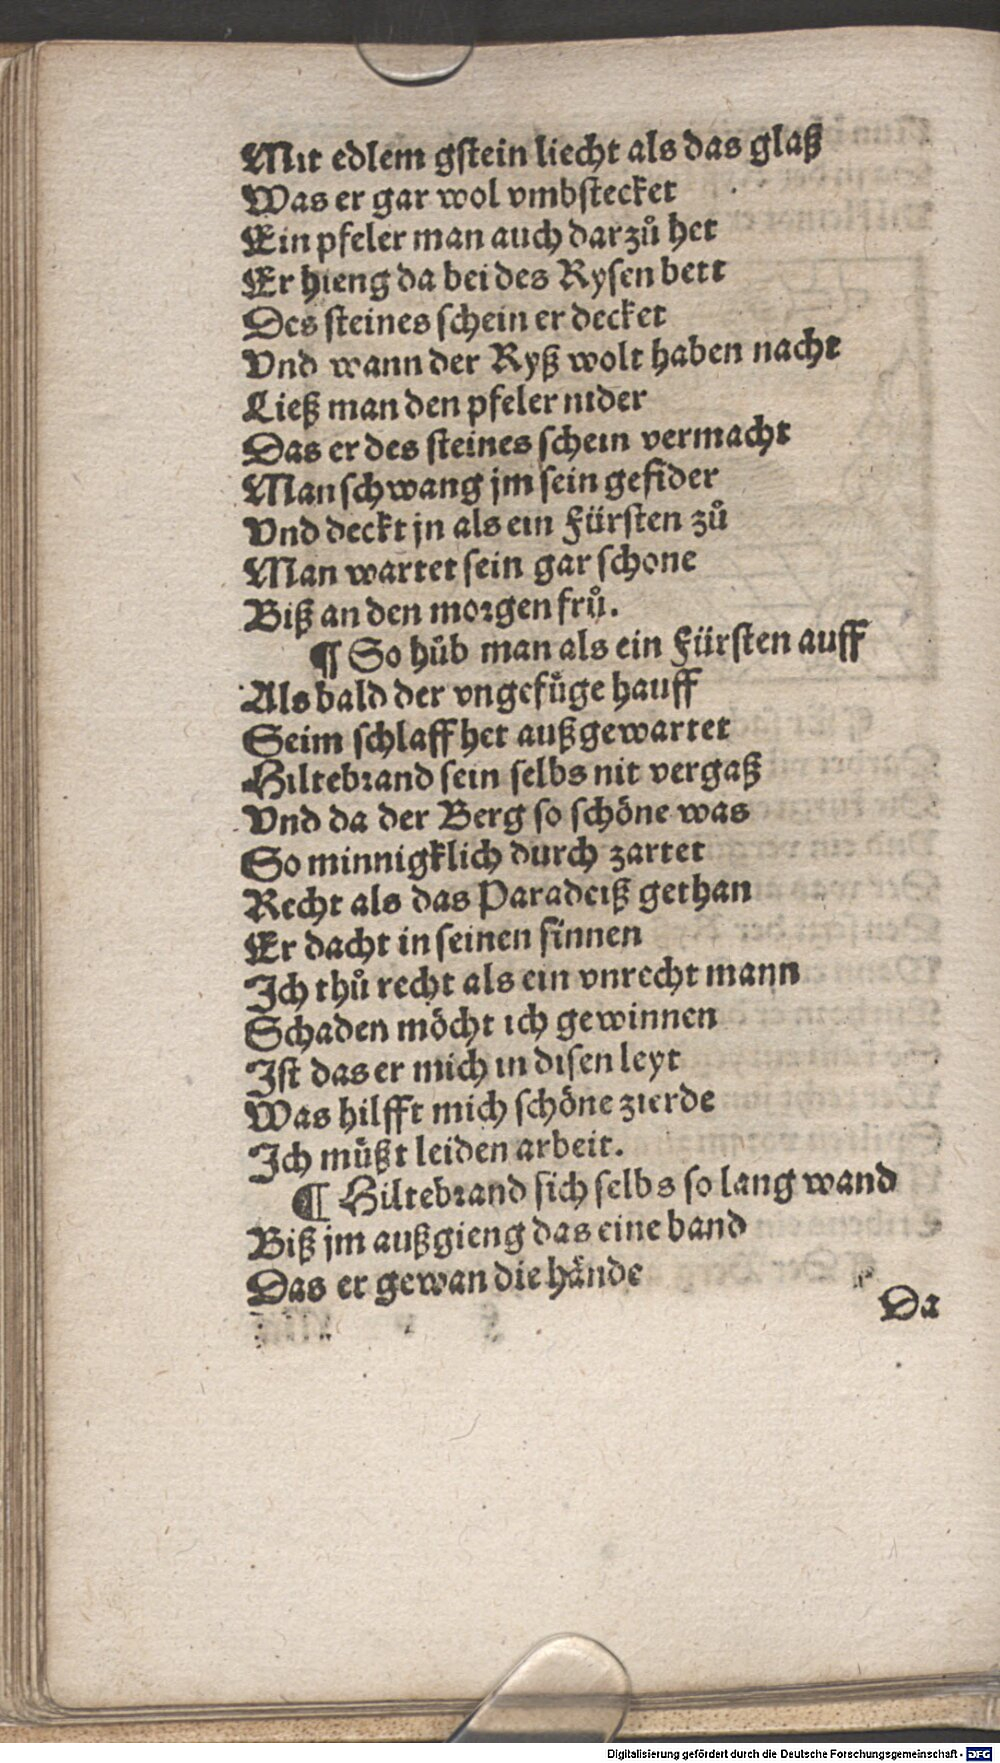 Mit edlem gstein liecht als das glaß
Was er gar wol vmbstecket
Ein pfeler man auch darzů het
Er hieng da bei des Rysen bett
Des steines schein er decket
Vnd wann der Ryß wolt haben nacht
Ließ man den pfeler nider
Das er des steines schein vermacht
Man schwang jm sein gefider
Vnd deckt jn als ein Fürsten zů
Man wartet sein gar schone
Biß an den morgen frů.
¶ So hůb man als ein Fürsten auff
Als bald der vngefůge hauff
Seim schlaff het außgewartet
Hiltebrand sein selbs nit vergaß
Vnd da der Berg so schöne was
So minnigklich durch zartet
Recht als das Paradeiß gethan
Er dacht in seinen sinnen
Ich thů recht als ein vnrecht mann
Schaden möcht ich gewinnen
Ist das er mich in disen leyt
Was hilfft mich schöne zierde
Ich můßt leiden arbeit.
¶ Hiltebrand sich selbs so lang wand
Biß jm außgieng das eine band
Das er gewan die hände
Da
Digitalisierung gefördert durch die Deutsche Forschungsgemeinschaft - DFG